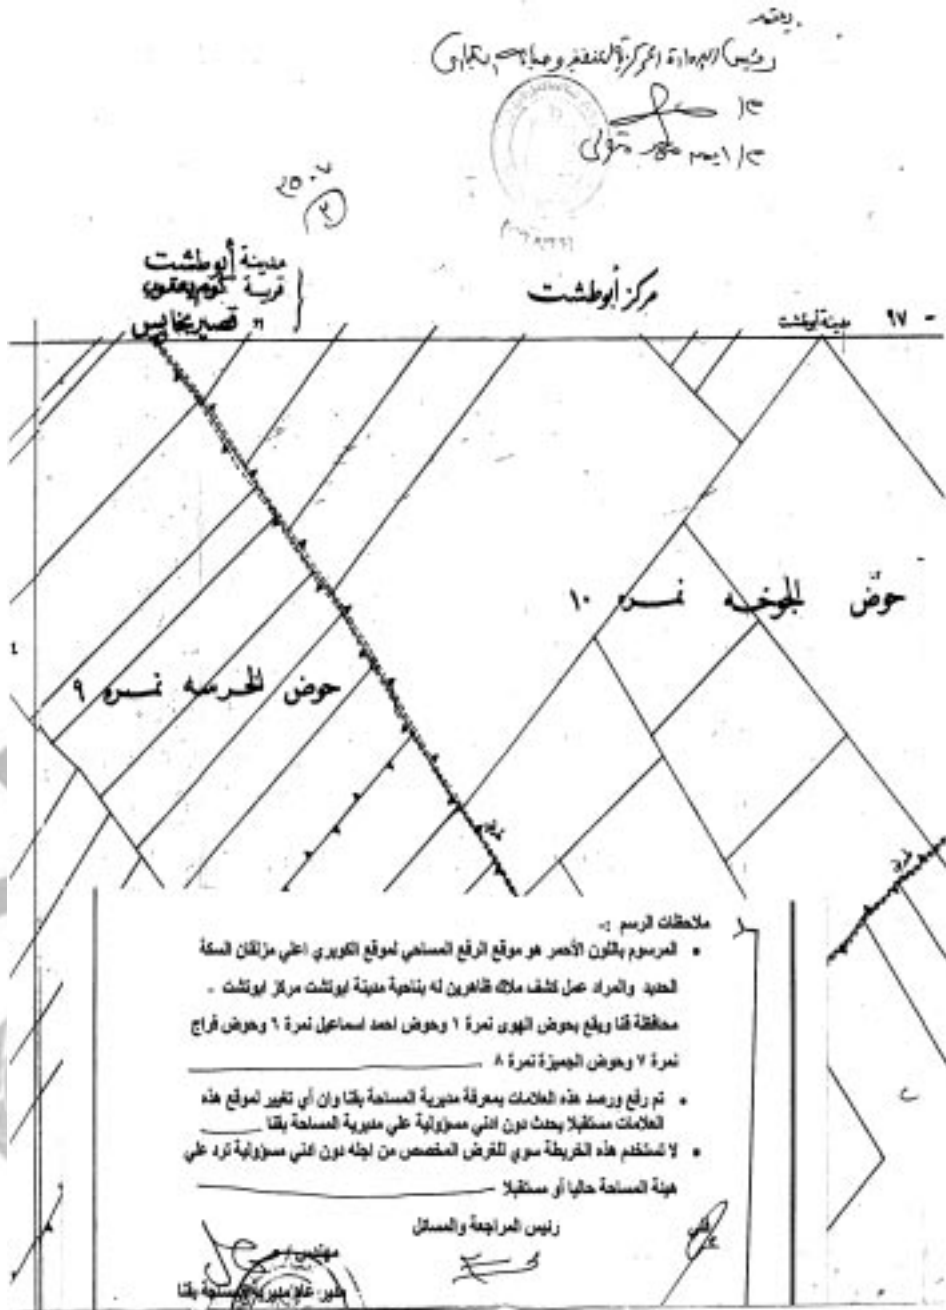 يعتمد
رئيس الإدارة المركزية
مدينة أبوطشت
قرية كوم يعقوب
" قصير بخانس
مركز أبوطشت
مدينة أبوطشت
٩٧ -
حوض الجوخه نمره ١٠
حوض الخرسه نمره ٩
ملاحظات الرسم :-
• المرسوم باللون الأحمر هو موقع الرفع المساحي لموقع الكوبري اعلي مزلقان السكة
الحديد والمراد عمل كشف ملاك ظاهرين له بناحية مدينة ابوتشت مركز ابوتشت -
محافظة قنا ويقع بحوض الهوى نمرة ١ وحوض احمد اسماعيل نمرة ٦ وحوض فراج
نمرة ٧ وحوض الجميزة نمرة ٨
• تم رفع ورصد هذه العلامات بمعرفة مديرية المساحة بقنا وان أي تغيير لموقع هذه
العلامات مستقبلا يحدث دون ادني مسؤولية علي مديرية المساحة بقنا
• لا تستخدم هذه الخريطة سوي للغرض المخصص من اجله دون ادني مسؤولية ترد علي
هيئة المساحة حاليا أو مستقبلا
فني
رئيس المراجعة والمسائل
مهندس /
مدير عام مديرية المساحة بقنا